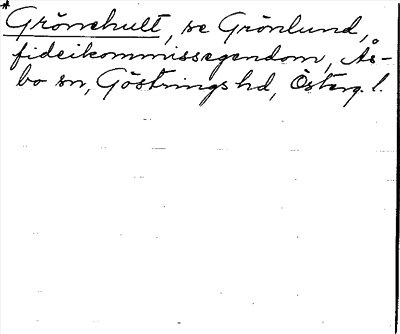 *Grönehult, se Grönlund,
fideikommissegendom, Ås-
bo sn, Göstrings hd, Österg. l.